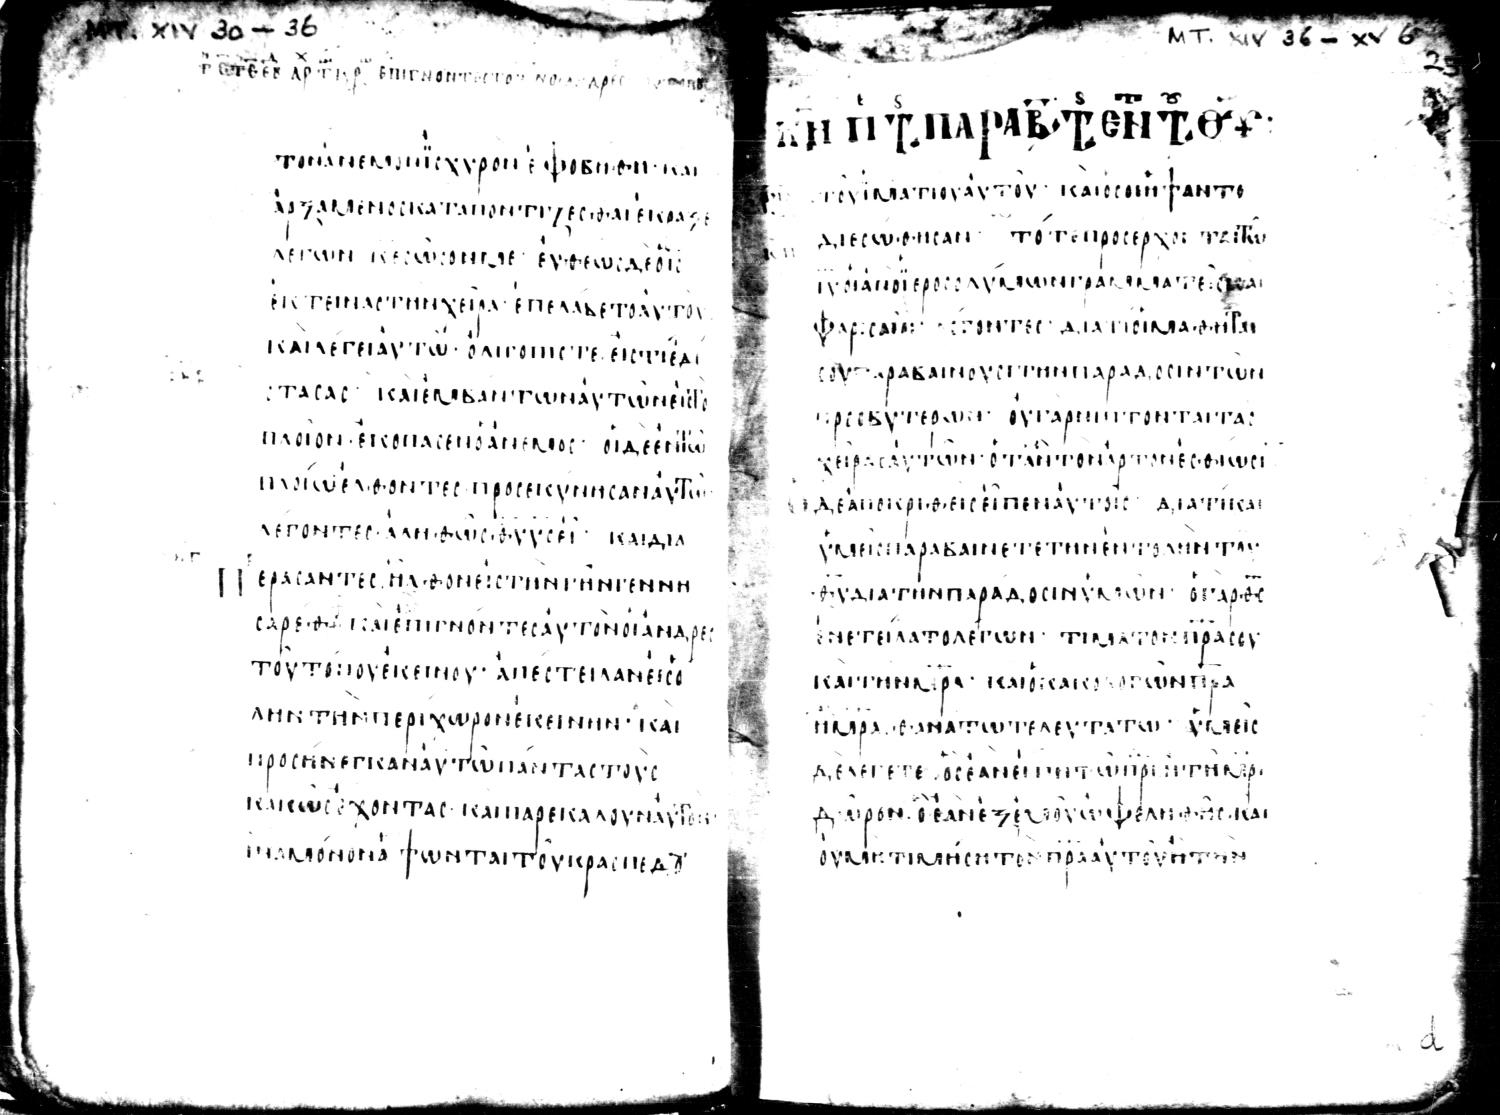 MT. XIV 30 – 36
ἐπιγνοντες τον
τον ἄνεμον ἰσχυρον ἐφοβήθη· και
ἀρξαμενος καταποντιζεσθαι ἐκραξε
λεγων κε σῶσον με· ἐυθεως δε ὁ ις
ἐκτεινας την χειρα· ἐπελαβετο ἀυτου
και λεγει ἀυτῶ· ὀλιγοπιστε εἰς τι ἐδι
στασας· και ἐμβαντων ἀυτων εἰς το
πλοιον· ἐκοπασεν ὁ ἀνεμος· οἱ δε ἐν τῶ
πλοιω ἐλθοντες· προσεκυνησαν ἀυτῶ
λεγοντες· ἀληθῶς θυ υς εἶ· και δια
Περασαντες ἦλθον εἰς την γῆν γεννη
σαρεθ· και ἐπιγνοντες ἀυτον οἱ ἀνδρες
του τοπου ἐκεινου· ἀπεστειλαν εἰς ὁ
λην την περιχωρον ἐκεινην· και
προσηνεγκαν ἀυτῶ παντας τους
κακῶς ἐχοντας· και παρεκαλουν ἀυτον
ἱνα μονον ἁψωνται του κρασπεδου
MT. XIV 36 – XV 6
25
του ἱματιου ἀυτου· και ὁσοι ἡψαντο
διεσωθησαν· τοτε προσερχονται τῶ
ιυ οἱ ἀπο ἱεροσολυμων γραμματεις και
φαρισαιοι λεγοντες· διατι οἱ μαθηται
σου παραβαινουσι την παραδοσιν των
πρεσβυτερων· ὀυ γαρ νιπτονται τας
χειρας ἀυτων· ὁταν τον ἀρτον ἐσθιωσι
δε ἀποκριθεις εἰπεν ἀυτοις· διατι και
ὑμεις παραβαινετε την ἐντολην του
θυ δια την παραδοσιν ὑμων· ὁ γαρ θς
ἐνετειλατο λεγων· τιμα τον πρα σου
και την μρα· και ὁ κακολογων πρα
ἢ μρα· θανατω τελευτατω· ὑμεις
δε λεγετε· ὃς ἐαν ἐιπη τω πρι ἢ τη μρι
δωρον· ὃ ἐαν ἐξ ἐμου ὠφεληθης· και
ὀυ μη τιμηση τον πρα ἀυτου ἢ την
d